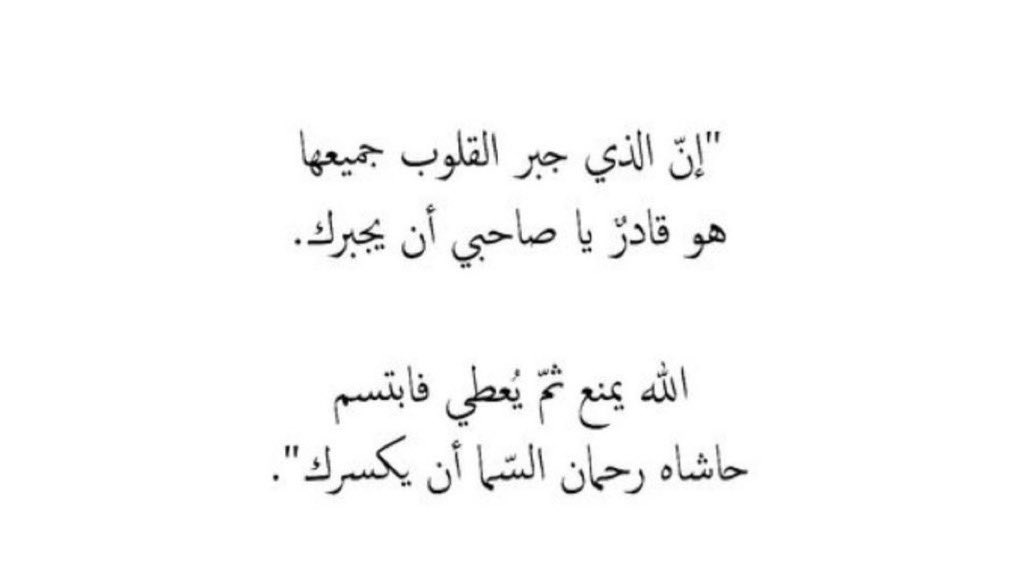 "إنّ الذي جبر القلوب جميعها
هو قادرٌ يا صاحبي أن يجبرك.
الله يمنع ثمّ يُعطي فابتسم
حاشاه رحمان السّما أن يكسرك".